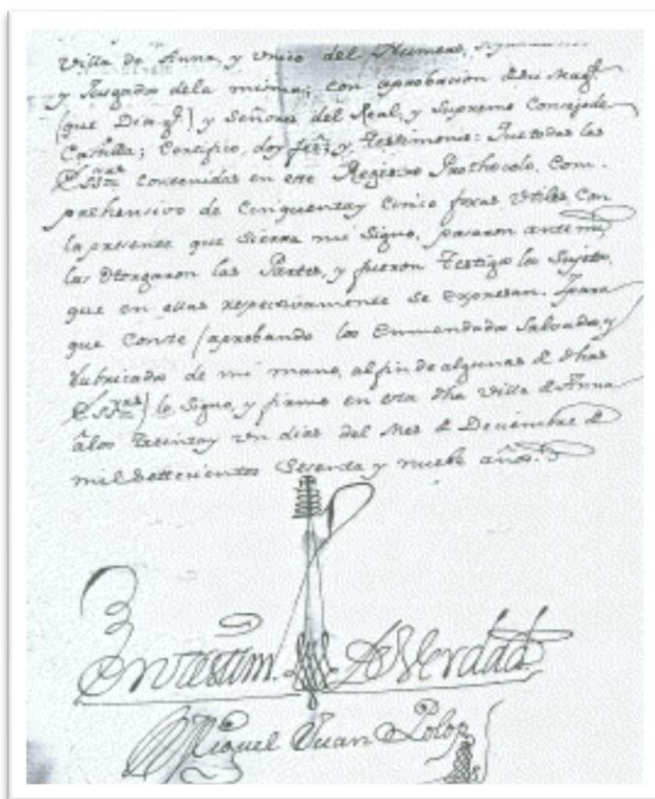 Villa de Anna, y Unico del Numero,
y Jusgado dela misma; con aprobacion de su Magd.
(que Dios ge.) y Señores del Real, y Supremo Consejo de
Castilla; Certifico, doy feé, y testimonio: Que todas las
Essras. contenidas en este Registro Prothocolo, Com-
prehensivo de Cinquenta y Cinco foxas utiles, con
la presente que Sierra mi Signo, pasaron ante mi,
las Otorgaron las Partes, y fueron testigos los Sujetos,
que en ellas respectivamente se expresan. Y para
que Conste (aprobando los Enmendados Salvados, y
rubricados de mi mano, al fin de algunas de dhas
Essras.) lo Signo, y firmo en esta dha Villa de Anna
à los Treinta y un dias del Mes de Deciembre de
mil Settecientos Sesenta y nueve años.
En testim. de Verdad
Miguel Juan Polop